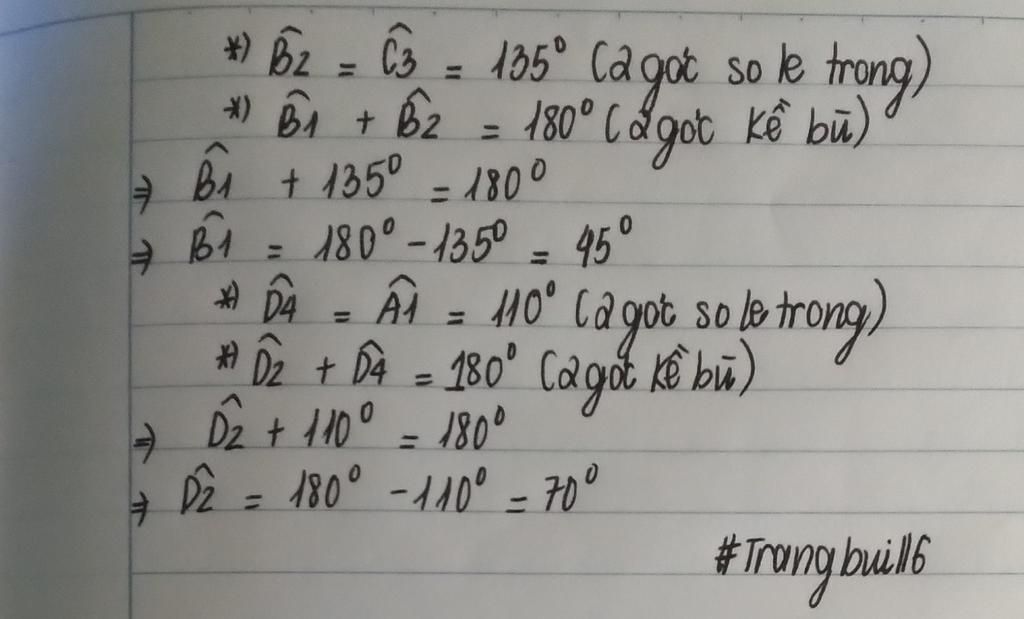 *) B̂2 = Ĉ3 = 135⁰ (2 góc so le trong)
*) B̂1 + B̂2 = 180⁰ (2 góc kề bù)
⇒ B̂1 + 135⁰ = 180⁰
⇒ B̂1 = 180⁰ - 135⁰ = 45⁰
*) D̂4 = Â1 = 110⁰ (2 góc so le trong)
*) D̂2 + D̂4 = 180⁰ (2 góc kề bù)
⇒ D̂2 + 110⁰ = 180⁰
⇒ D̂2 = 180⁰ - 110⁰ = 70⁰
#Trangbui116